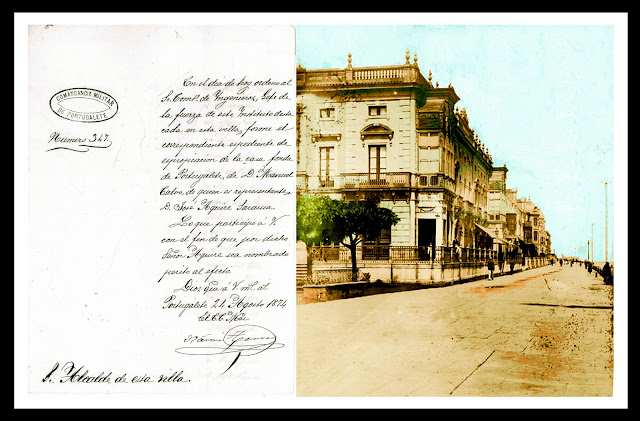 COMANDANCIA MILITAR
DE PORTUGALETE
Numero 347.
En el dia de hoy ordeno al
Sr. Comte. de Ingenieros, Gefe de
la fuerza de este Instituto desta
cada en esta villa, forme el
correspondiente espediente de
espropiacion de la casa fonda
de Portugalete, de D. Manuel
Calvo, de quien es representante
D. Jose Aguirre Sarasua
Lo que participo á V.
con el fin de que por dicho
Señor Aguirre sea nombrado
perito al efecto.
Dios gue á V. ms. as.
Portugalete 24 Agosto 1874
El C. Mar.
Sr. Alcalde de esta villa.